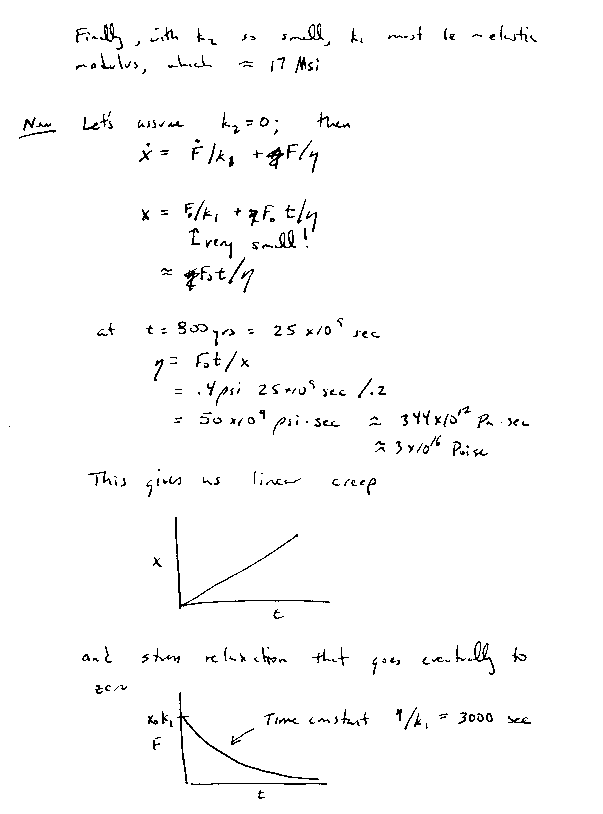 Finally, with k₂ so small, k₁ must be ~ elastic
modulus, which ≈ 17 Msi
Now Let's assume k₂ = 0; then
ẋ = Ḟ/k₁ + F/η
x = F₀/k₁ + F₀ t/η
↑ very small!
≈ F₀t/η
at t = 800 yrs = 25 x10⁹ sec
η = F₀t/x
= .4 psi 25x10⁹ sec /.2
= 50 x10⁹ psi·sec ≈ 344x10¹² Pa·sec
≈ 3x10¹⁶ Poise
This gives us linear creep
x
t
and stress relaxation that goes eventually to
zero
x₀k₁
Time constant η/k₁ = 3000 sec
F
t